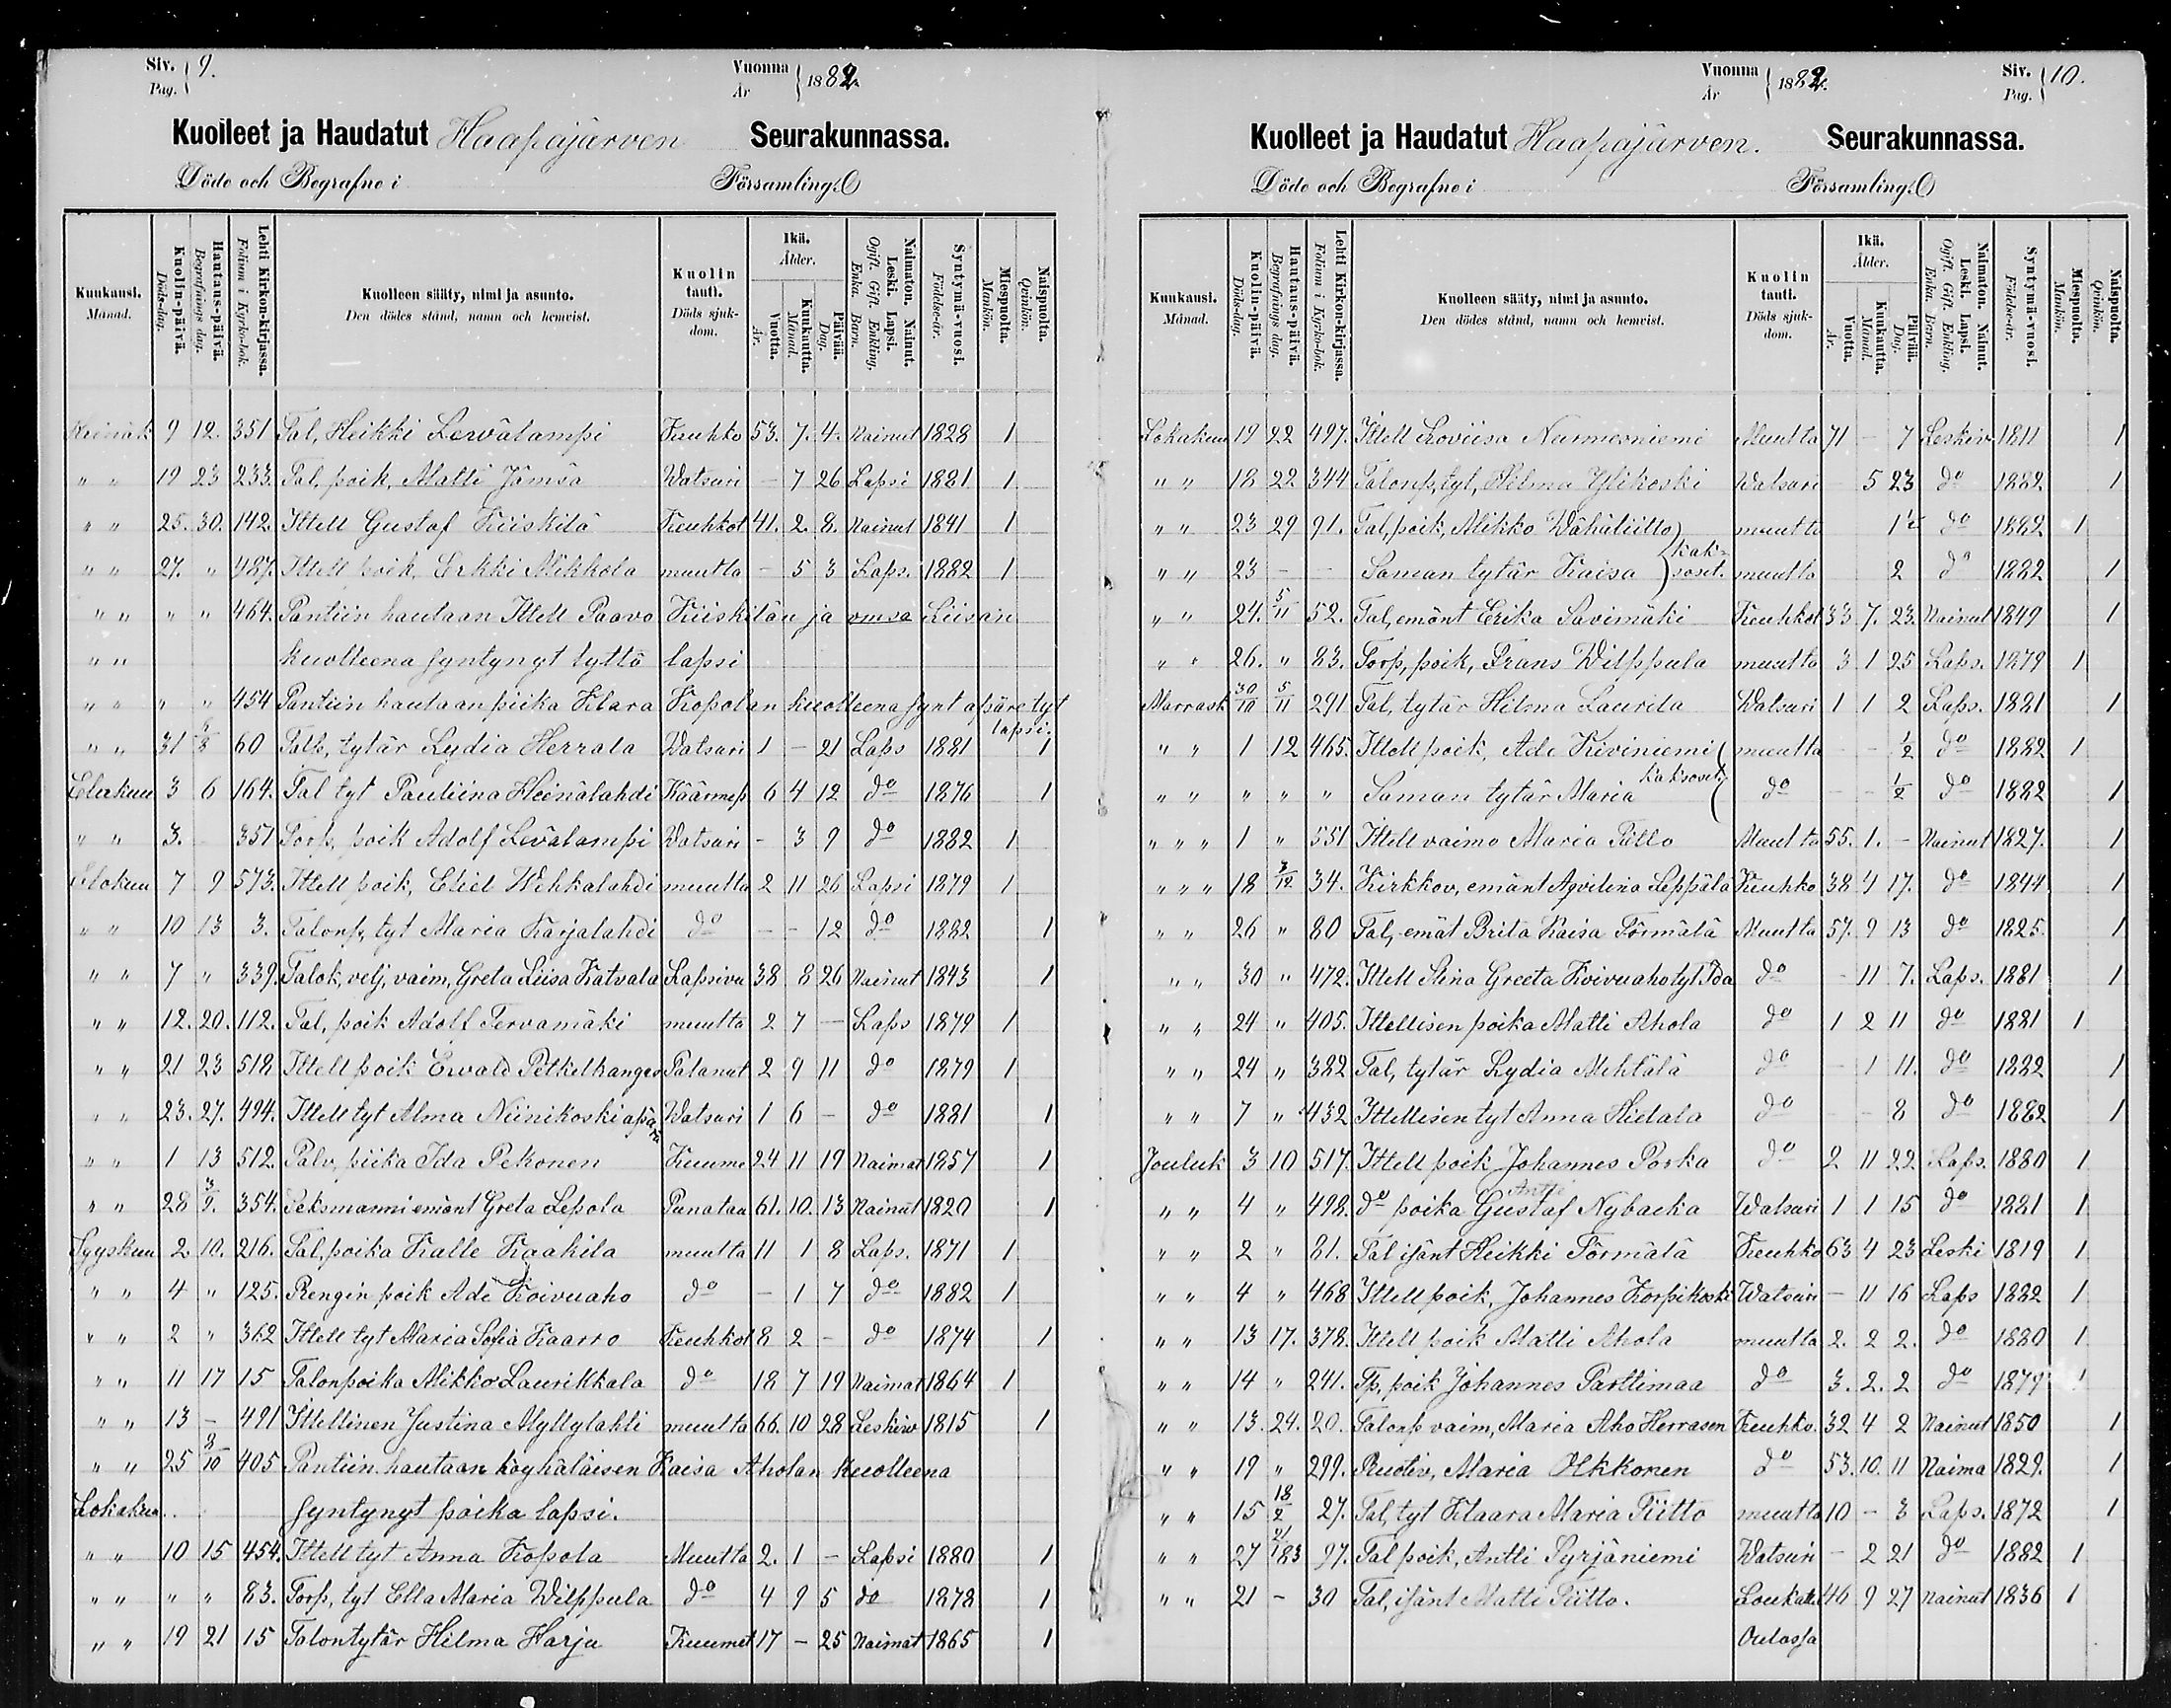 Siv. Pag. 9.
Vuonna År 1882.
Kuolleet ja Haudatut Haapajärven Seurakunnassa.
Döde och Begrafne i Församling.
Kuukausi. Månad.
Kuolin-päivä. Döds-dag.
Hautaus-päivä. Begrafnings dag.
Lehti Kirkon-kirjassa. Folium i Kyrko-bok.
Kuolleen sääty, nimi ja asunto. Den dödes stånd, namn och hemvist.
Kuolin tauti. Döds sjukdom.
Ikä. Ålder.
Vuotta. År. Kuukautta. Månad. Päivää. Dag.
Naimaton. Nainut. Leski. Lapsi. Ogift. Gift. Enkling. Enka. Barn.
Syntymä-vuosi. Födelse-år.
Miespuolta. Mankön.
Naispuolta. Qvinkön.
Heinäk 9 12. 351 Tal, Heikki Lervälampi Keuhko 53. 7. 4. Nainut 1828 1
" " 19 23 233. Tal, poik, Matti Jämsä Watsuri - 7 26 Lapsi 1881 1
" " 25. 30. 142. Ittell Gustaf Kiiskilä Keuhkot 41. 2. 8. Nainut 1841 1
" " 27. " 487. Ittell poik, Erkki Mikkola muutta - 5 3 Laps. 1882 1
" " " " 464. Pantiin hautaan Ittell Paavo Kiiskilän ja vmsa Liisan
" " kuolleena syntynyt tyttö lapsi
" " " " 454 Pantiin hautaan piika Klara Kopolan kuolleena synt apäre tyt lapsi.
" " 31 5/8 60 Talp, tytär Lydia Herrala Watsuri 1 - 21 Laps 1881 1
Elokuu 3 6 164. Tal tyt Pauliina Heinälahdi Käärmep 6 4 12 do 1876 1
" " 3. 351 Torp, poik Adolf Levälampi Watsuri - 3 9 do 1882 1
Elokuu 7 9 573. Ittell poik, Eliel Wehkalahdi muutta 2 11 26 Lapsi 1879 1
" " 10 13 3. Talonp, tyt Maria Karjalahdi do - - 12 do 1882 1
" " 7 " 339. Talok, velj, vaim, Greta Liisa Katvala Lapsivu 38 8 26 Nainut 1843 1
" " 12. 20. 112. Tal, poik Adolf Tervamäki muutta 2 7 - Laps 1879 1
" " 21 23 518 Ittell poik Ewald Petkelkanges Palanut 2 9 11 do 1879 1
" " 23. 27. 494. Ittell tyt Alma Niinikoski apärä Watsuri 1 6 - do 1881 1
" " 1 13 512. Palv, piika Ida Pekonen Kuume 24 11 19 Naimat 1857 1
" " 28 3/9. 354. Seksmanni emänt Greta Lepola Punatau 61. 10. 13 Nainut 1820 1
Syyskuu 2 10. 216. Tal, poika Kalle Kaakila muutta 11 1 8 Laps. 1871 1
" " 4 " 125. Rengin poik Ade Koivuaho do - 1 7 do 1882 1
" " 2 " 362 Ittell tyt Maria Sofia Kaarro Keuhkot 8 2 - do 1874 1
" " 11 17 15 Talonpoika Mikko Laurikkala do 18 7 19 Naimat 1864 1
" " 13 - 491 Ittellinen Justina Myllylahti muutta 66. 10 28 Leskiv 1815 1
" " 25 8/10 405 Pantiin hautaan köyhäläisen Kaisa Aholan kuolleena
Lokakuu syntynyt poika lapsi.
" " 10 15 454. Ittell tyt Anna Kopola Muutta 2. 1 - Lapsi 1880 1
" " " " 83. Torp, tyt Ella Maria Wilppula do 4 9 5 do 1878 1
" " 19 21 15 Talontytär Hilma Harju Kuumet 17 - 25 Naimat 1865 1
Vuonna År 1882.
Siv. Pag. 10.
Kuolleet ja Haudatut Haapajärven. Seurakunnassa.
Döde och Begrafne i Församling.
Kuukausi. Månad.
Kuolin-päivä. Döds-dag.
Hautaus-päivä. Begrafnings dag.
Lehti Kirkon-kirjassa. Folium i Kyrko-bok.
Kuolleen sääty, nimi ja asunto. Den dödes stånd, namn och hemvist.
Kuolin tauti. Döds sjukdom.
Ikä. Ålder.
Vuotta. År. Kuukautta. Månad. Päivää. Dag.
Naimaton. Nainut. Leski. Lapsi. Ogift. Gift. Enkling. Enka. Barn.
Syntymä-vuosi. Födelse-år.
Miespuolta. Mankön.
Naispuolta. Qvinkön.
Lokakuu 19 22 497. Ittell Loviisa Nurmesniemi Muutta 71 - 7 Leskiv 1811 1
" " 18 22 344 Talonp, tyt, Hilma Ylikoski Watsuri 5 23 do 1882 1
" " 23 29 91. Tal, poik, Mikko Wähäliitto muutta 1½ do 1882 1
" " 23 - - Saman tytär Kaisa kaksoset. muutta 2 do 1882 1
" " 24. 5/11 52. Tal, emänt Erika Savimäki Keuhkot 33 7. 23. Nainut 1849 1
" " 26. " 83. Torp, poik, Frans Wilppula muutta 3 1 25 Laps. 1879 1
Marrask 30/10 5/11 291 Tal, tytär Hilma Laurila Watsuri 1 1 2 Laps. 1881 1
" " 1 12 465. Ittell poik, Ade Kiviniemi muutta - - ½ do 1882 1
" " " " " Saman tytär Maria kaksoset do - - ½ do 1882 1
" " " 1 " 551 Ittell vaimo Maria Pillo Muutta 55. 1. - Nainut 1827. 1
" " " 18 3/12 34. Kirkkov, emänt Agvilina Leppälä Keuhko 38 4 17. do 1844 1
" " 26 " 80 Tal, emät Brita Kaisa Törmälä Muutta 57. 9 13 do 1825. 1
" " 30 " 472. Ittell Stina Greeta Koivuaho tyt Ida do - 11 7. Laps. 1881 1
" " 24 " 405. Ittellisen poika Matti Ahola do 1 2 11 do 1881 1
" " 24 " 382 Tal, tytär Lydia Mehtälä do - 1 11. do 1882 1
" " 7 " 432 Ittellisen tyt Anna Hietala do - - 8 do 1882 1
Jouluk 3 10 517. Ittell poik Johannes Porka do 2 11 22 Laps. 1880 1
" " 4 " 498. do poika Gustaf Antti Nybacka Watsuri 1 1 15 do 1881 1
" " 2 " 81. Tal isänt Heikki Törmälä Keuhko 63 4 23 Leski 1819 1
" " 4 " 468 Ittell poik, Johannes Korpikoski Watsuri - 11 16 Laps 1882 1
" " 13 17. 378. Ittell poik Matti Ahola muutta 2. 2 2. do 1880 1
" " 14 " 241. Tp, poik Johannes Parttimaa do 3. 2. 2 do 1879 1
" " 13. 24. 20. Talonp vaim, Maria Aho Herrasen Keuhko. 32 4 2 Nainut 1850 1
" " 19 " 299. Ruotiv, Maria Okkonen do 53. 10. 11 Naima 1829. 1
" " 15 18/2 27. Tal, tyt Klaara Maria Tiitto muutta 10 - 3 Laps. 1872 1
" " 27 21/1 83 97. Tal poik, Antti Pyrjäniemi Watsuri - 2 21 do 1882 1
" " 21 - 30 Tal, isänt Matti Tiitto. Loukatt. 46 9 27 Nainut 1836 1
Oulossa